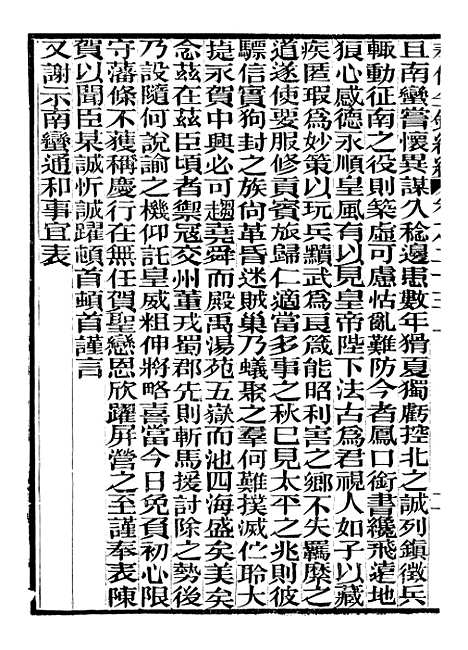 且南蠻嘗懷異謀久稔邊患數年猾夏獨虧控北之誠列鎮徵兵
輒動征南之役則築虛可慮怙亂難防今者鳳口銜書纔飛遠地
狼心感德永順皇風有以見皇帝陛下法古爲君視人如子以藏
疾匿瑕爲妙策以玩兵黷武爲良箴能昭利害之鄉不失羈縻之
道遂使要服修貢賓旅歸仁適當多事之秋已見太平之兆則彼
驃信實狗封之族尙革昏迷賊巢乃蟻聚之羣何難撲滅伫聆大
捷永賀中興必可趨堯舜而殿禹湯苑五嶽而池四海盛矣美矣
念茲在茲臣頃者禦寇交州董戎蜀郡先則斬馬援討除之勢後
乃設隨何說諭之機仰託皇威粗伸將略喜當今日免負初心限
守藩條不獲稱慶行在無任賀聖戀恩欣躍屏營之至謹奉表陳
賀以聞臣某誠忻誠躍頓首頓首謹言
又謝示南蠻通和事宜表